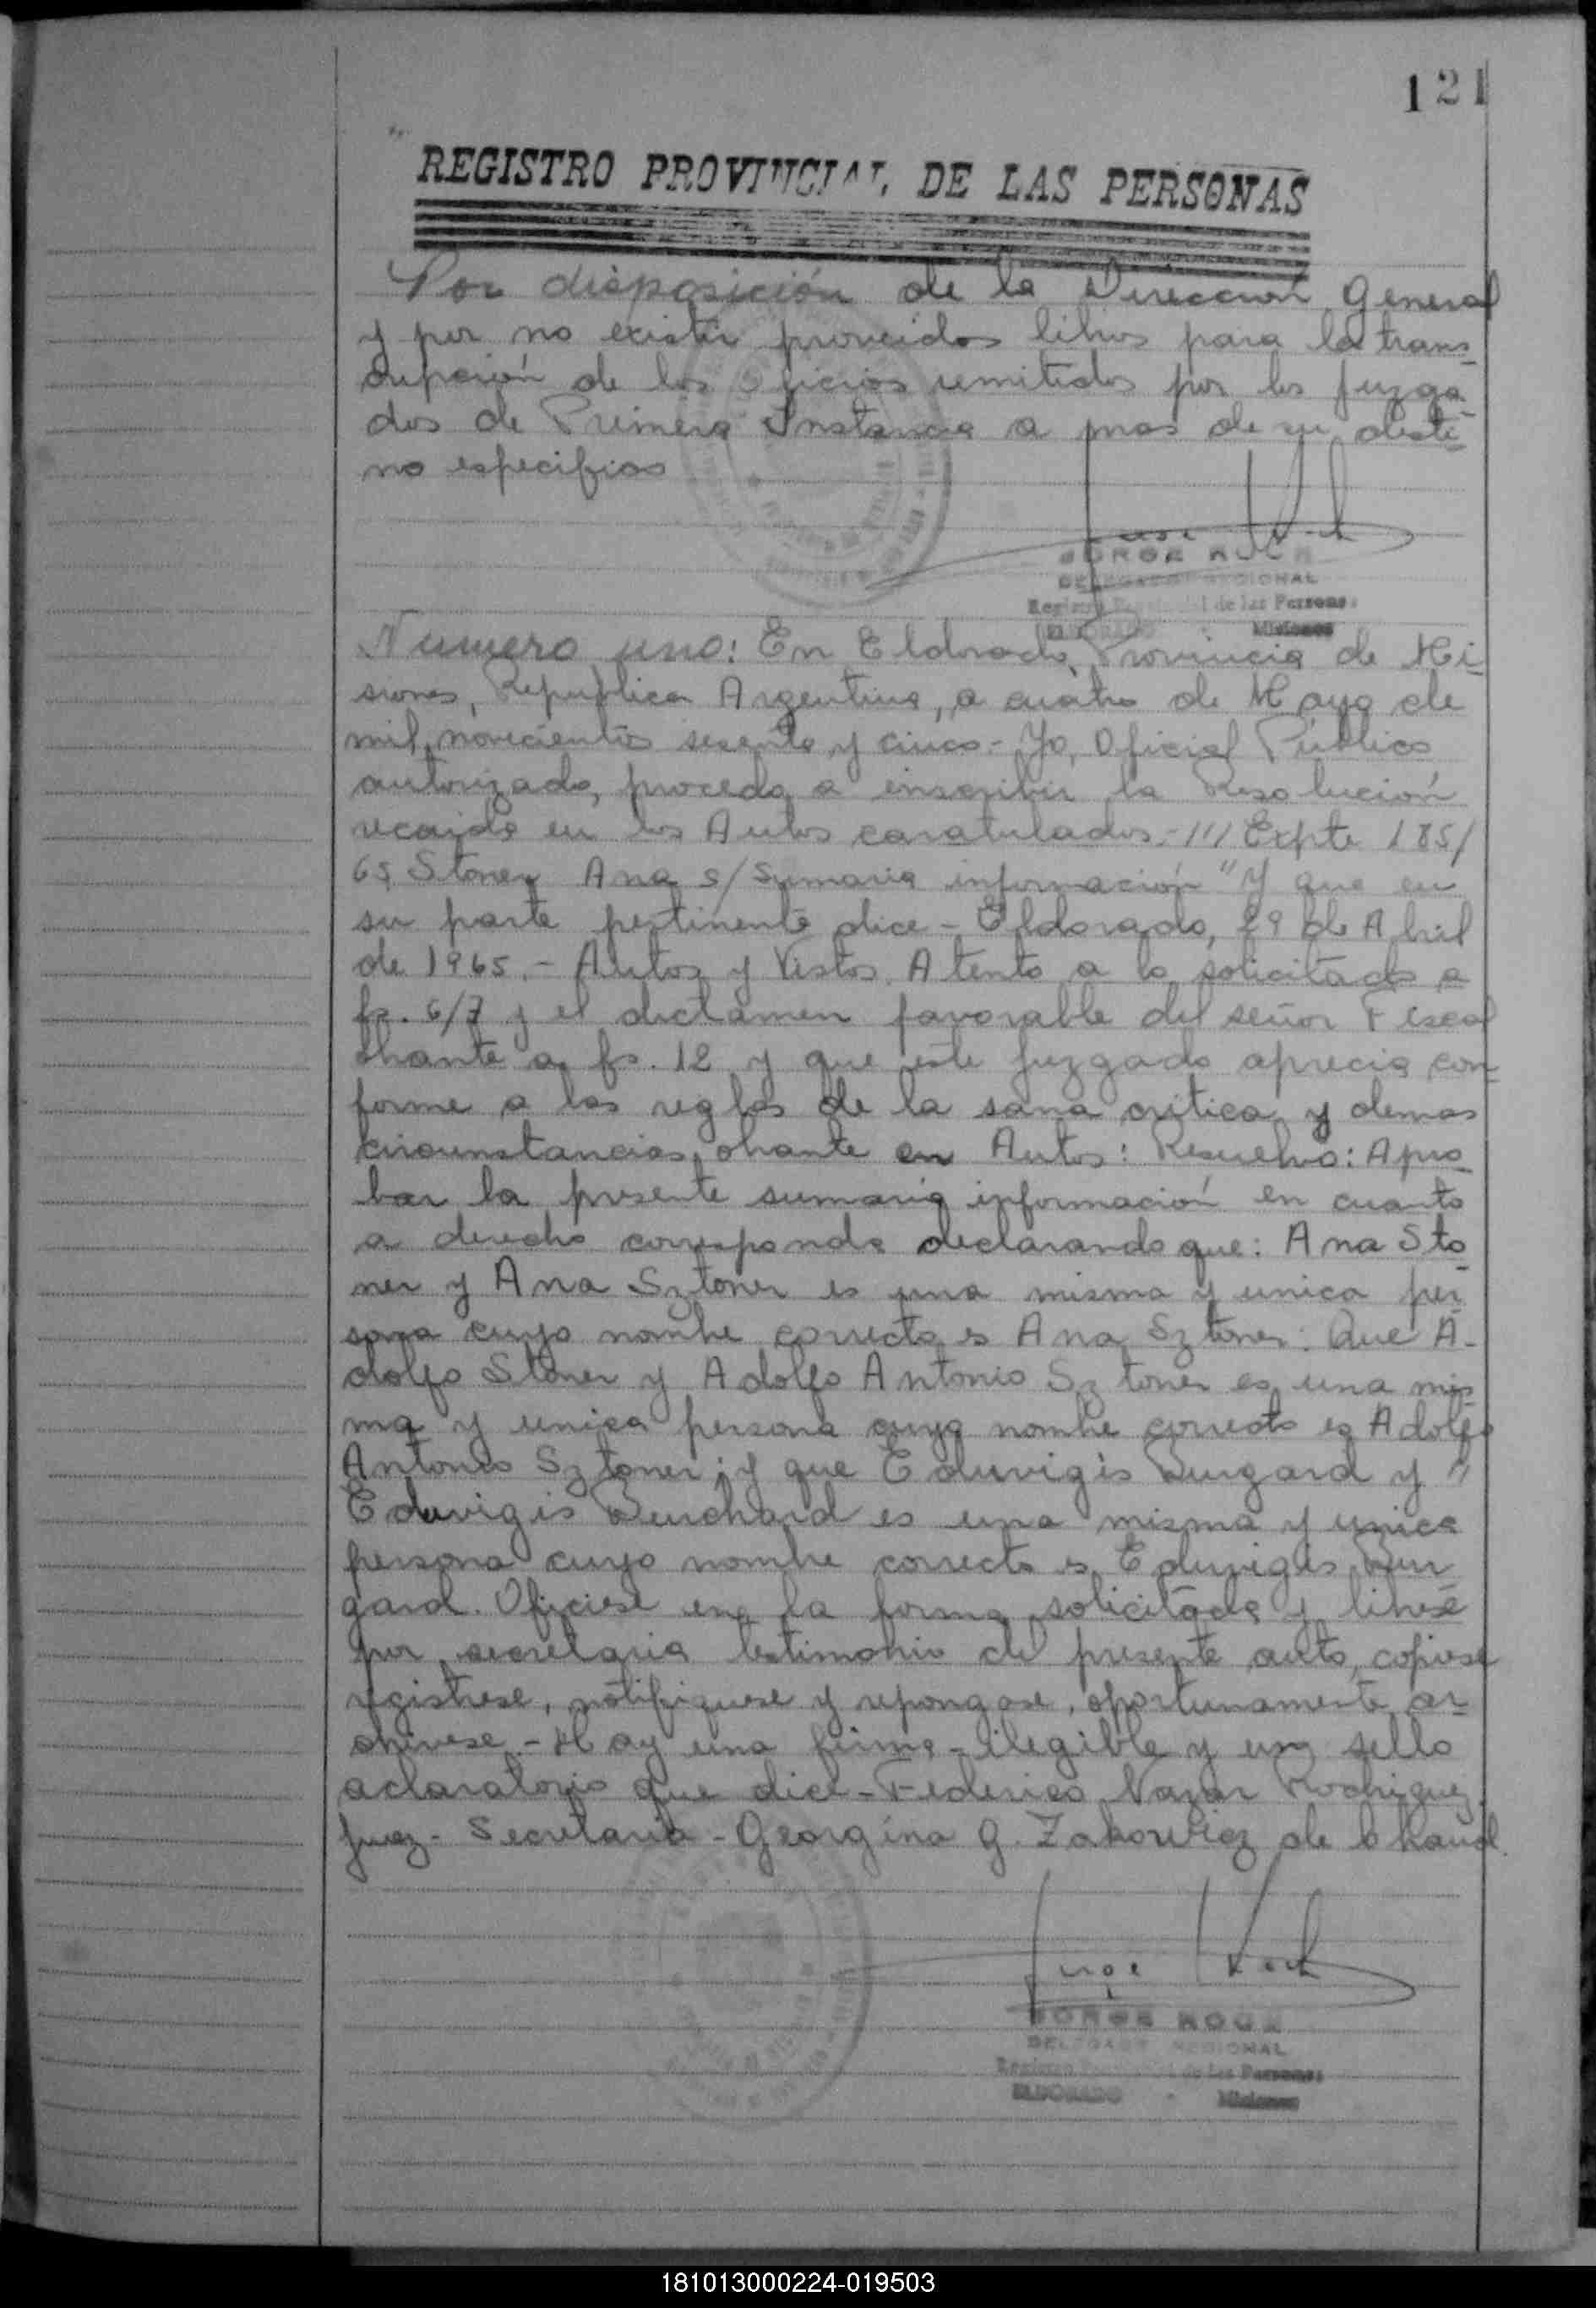 121
REGISTRO PROVINCIAL DE LAS PERSONAS
Por disposición de la Direccion General
y por no existir proveidos libros para la trans-
cripción de los Oficios remitidos por los juzga-
dos de Primera Instancia a mas de su desti-
no especifico
Jorge Koch
JORGE KOCH
DELEGADO REGIONAL
Registro Provincial de las Personas
ELDORADO - Misiones
Numero uno: En Eldorado, Provincia de Mi-
siones, Republica Argentina, a cuatro de Mayo de
mil novecientos sesenta y cinco.- Yo, Oficial Publico
autorizado, procedo a inscribir la Resolución
recaida en los Autos caratulados.- /// Expte 185/
65 Stoner Ana s/ Sumaria información " Y que en
su parte pertinente dice - Eldorado, 29 de Abril
de 1965.- Autos y Vistos. Atento a lo solicitado a
fs. 6/7 y el dictamen favorable del señor Fiscal
obrante a fs. 12 y que este juzgado aprecia con-
forme a las reglas de la sana critica y demas
circunstancias obrante en Autos: Resuelvo: Apro-
bar la presente sumaria información en cuanto
a derecho corresponda declarando que: Ana Sto-
ner y Ana Sztoner es una misma y unica per-
sona cuyo nombre correcto es Ana Sztoner: Que A-
dolfo Stoner y Adolfo Antonio Sztoner es una mis-
ma y unica persona cuyo nombre correcto es Adolfo
Antonio Sztoner; y que Eduvigis Burgard y "
Eduvigis Burchard es una misma y unica
persona cuyo nombre correcto es Eduvigis Bur-
gard. Oficiese en la forma solicitada y librese
por secretaria testimonio del presente auto, copiese
registrese, notifiquese y repongase, oportunamente ar-
chivese.- Hay una firma - ilegible y un sello
aclaratorio que dice - Federico Nazar Rodriguez
Juez - Secretaria - Georgina G. Zakowicz de
Jorge Koch
JORGE KOCH
DELEGADO REGIONAL
Registro Provincial de las Personas
ELDORADO - Misiones
181013000224-019503